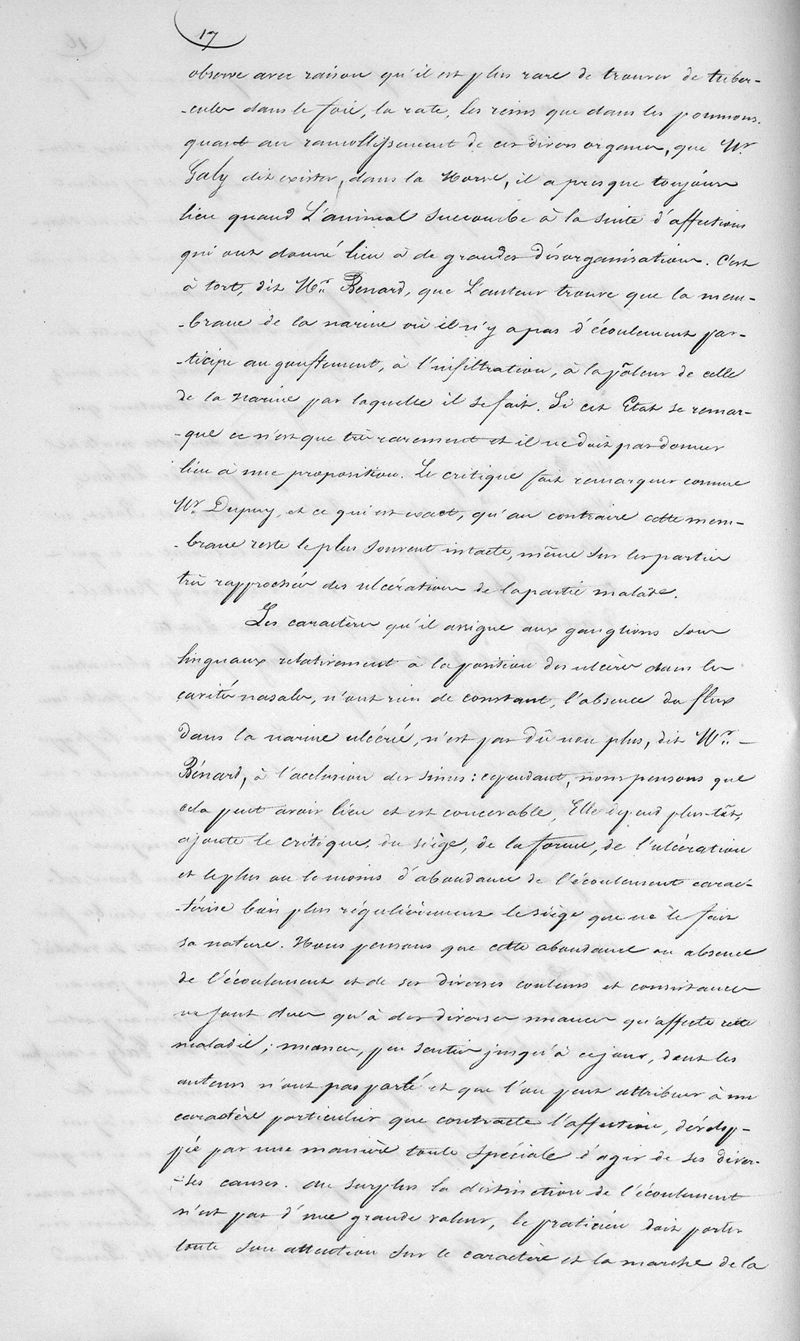 17
observe avec raison qu'il est plus rare de trouver de tuber-
-cules dans le foie, la rate, les reins que dans les poumons.
quant au ramollissement de ces divers organes, que Mr.
Galy dit exister, dans la Morve, il a presque toujours
lieu quand l'animal succombe à la suite d'affections
qui ont donné lieu à de grandes désorganisations. C'est
à tort, dit Mr. Benard, que L'auteur trouve que la mem-
-brane de la narine où il n'y a pas d'écoulement par-
-ticipe au gonflement, à l'infiltration, à la pâleur de celle
de la Narine par laquelle il se fait. Si cet Etat se remar-
-que ce n'est que très rarement et il ne doit pas donner
lieu à une proposition. Le critique fait remarquer comme
Mr. Dupuy, et ce qui est exact, qu'au contraire cette mem-
-brane reste le plus souvent intacte, même sur les parties
très rapprochées des ulcérations de la partie malade.
Les caractères qu'il assigne aux ganglions sous
linguaux relativement à la position des ulcères dans les
cavités nasales, n'ont rien de constant, l'absence du flux
dans la narine ulcérée, n'est pas dû non plus, dit Mr. -
Bénard, à l'occlusion des sinus: cependant, nous pensons que
cela peut avoir lieu et est concevable, Elle dépend plus-tôt,
ajoute le critique, du siège, de la forme, de l'ulcération
et le plus ou le moins d'abondance de l'écoulement carac-
-térise bien plus régulièrement le siège que ne le fait
sa nature. Nous pensons que cette abondance ou absence
de l'écoulement et de ses diverses couleurs et consistances
ne sont dues qu'à des diverses nuances qu'affecte cette
maladie; nuances, peu senties jusqu'à ce jour, dont les
auteurs n'ont pas parlé et que l'on peut attribuer à un
caractère particulier que contracte l'affection, dévelop-
pée par une manière toute spéciale d'agir de ses diver-
-ses causes. au surplus la distinction de l'écoulement
n'est pas d'une grande valeur, le praticien doit porter
toute son attention sur le caractère et la marche de la